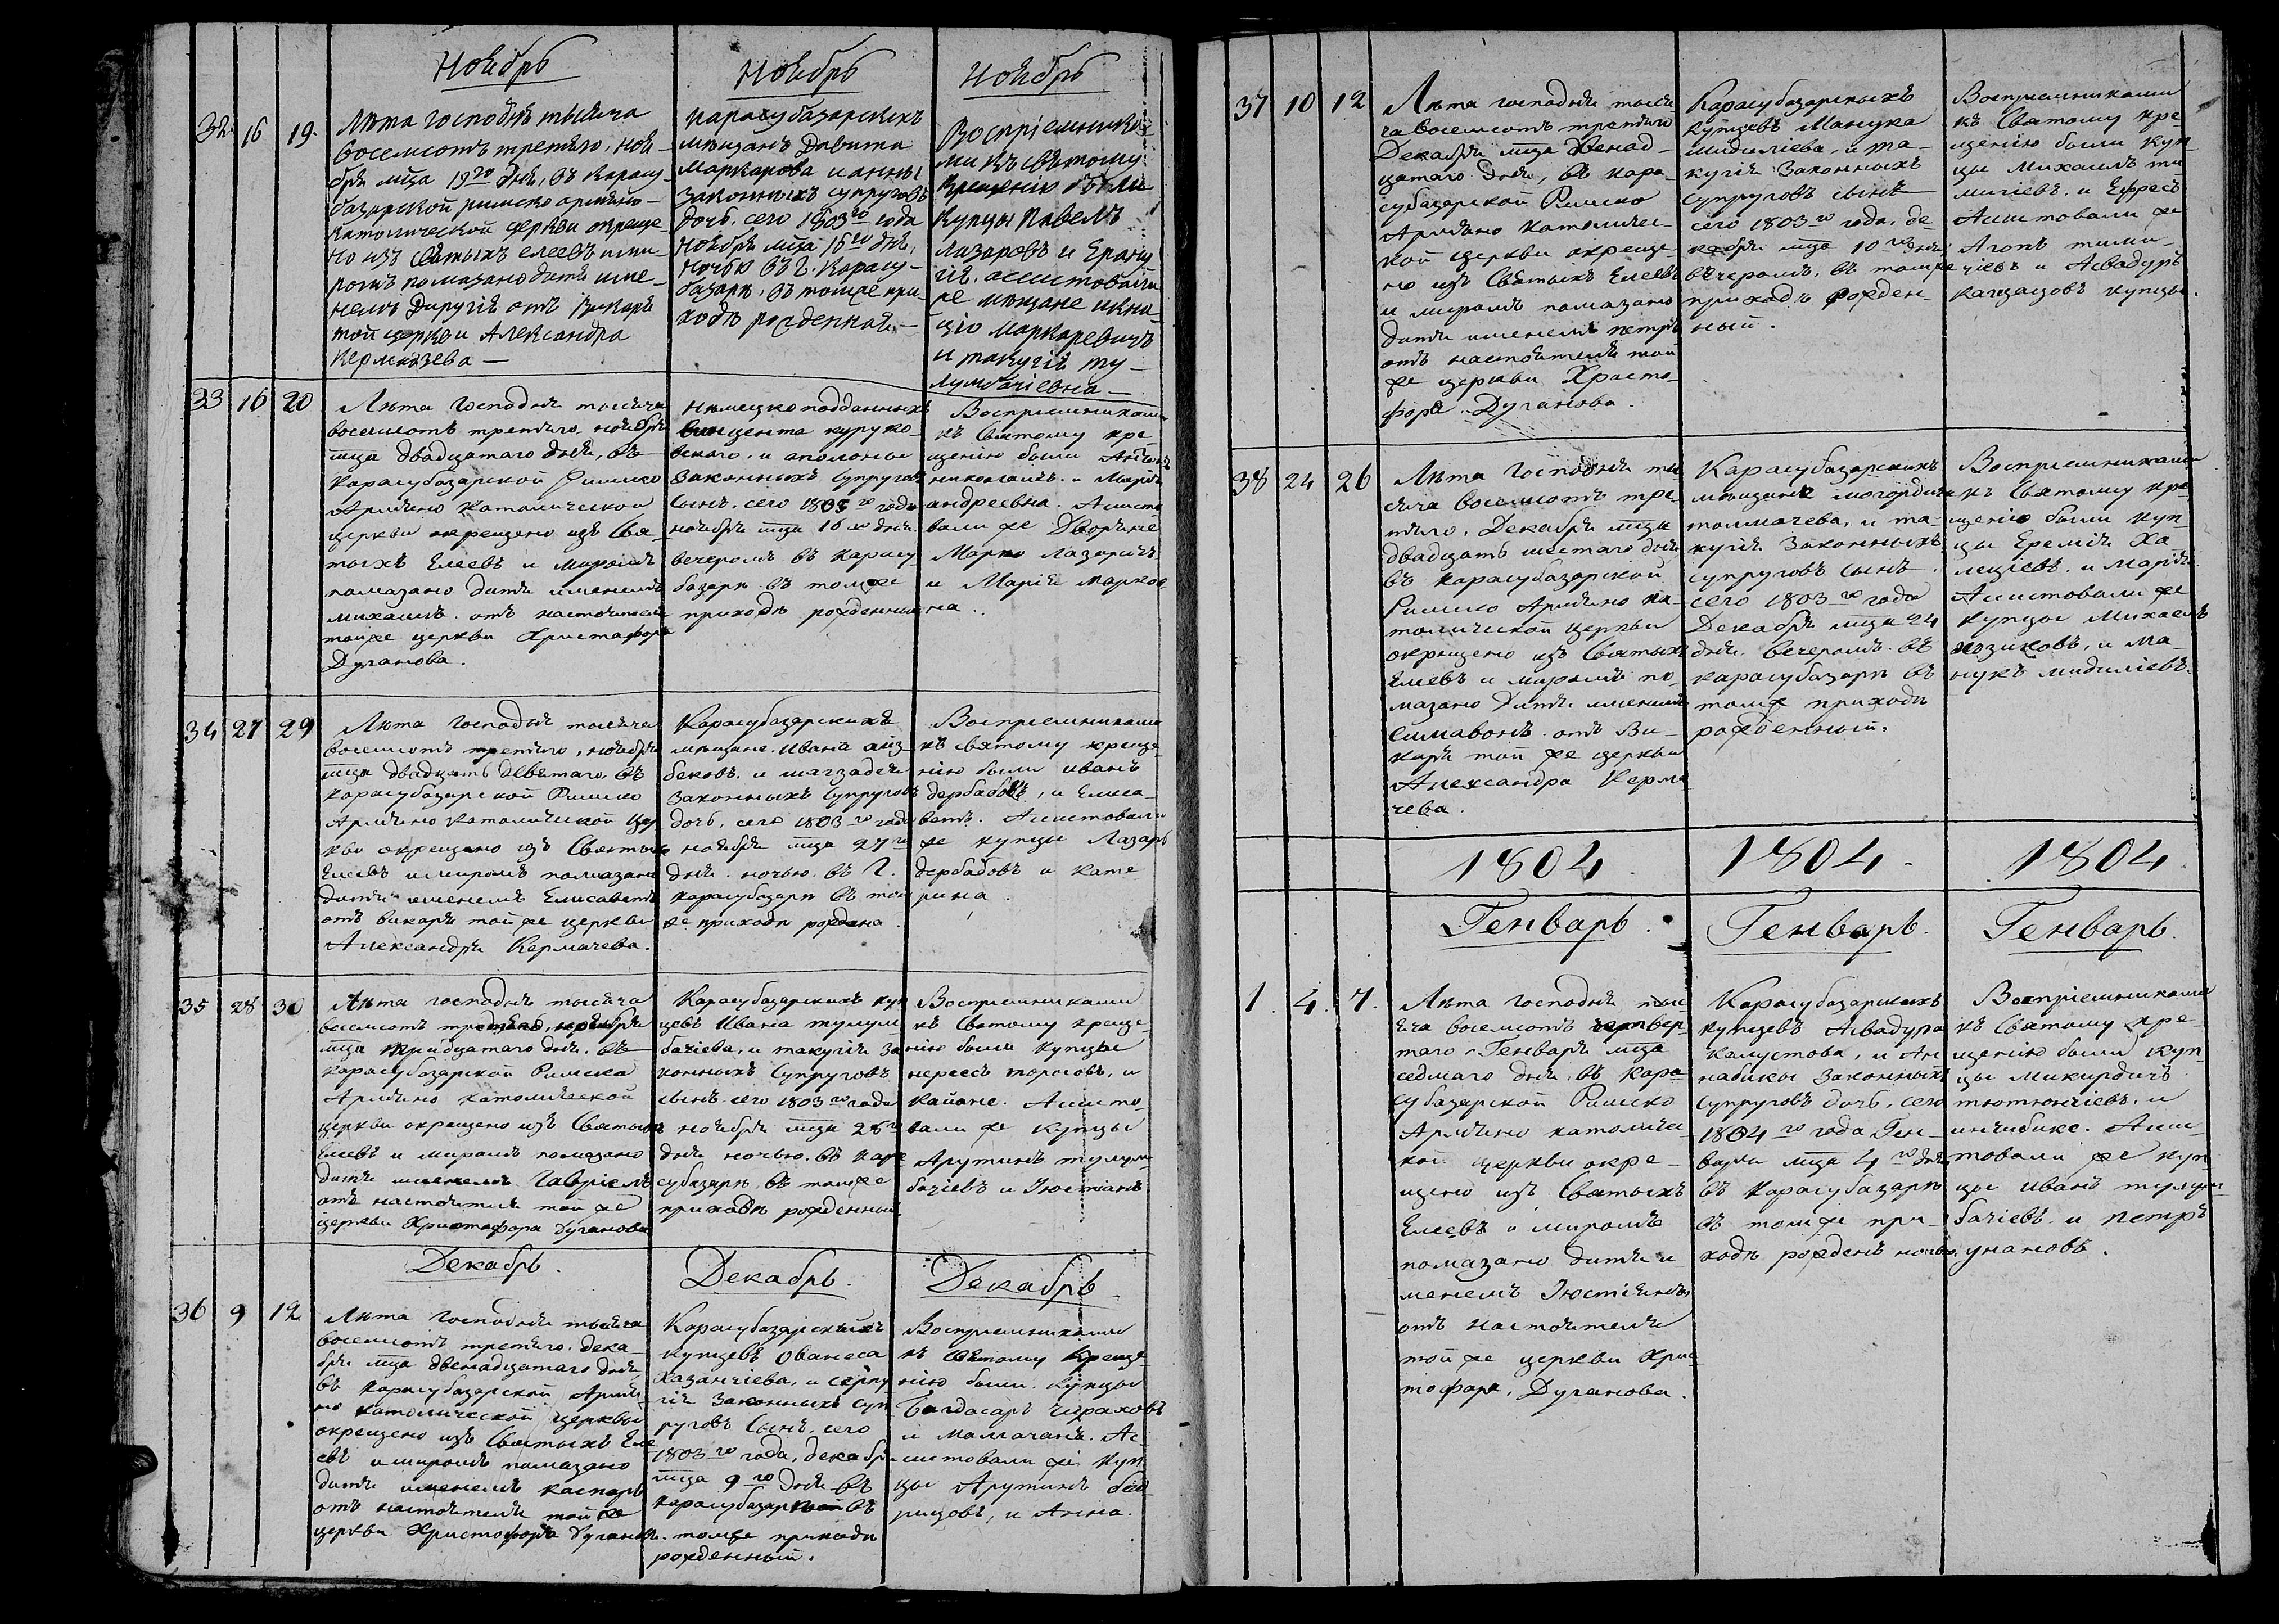 Ноябрь
32. 16 19.
Лѣта Господня тысяча
восемсотъ третьяго, ноя-
бря мца 19го дня, въ Карасу-
базарской римско армяно-
католической церкви окреще-
но изъ святыхъ елеевъ и ми-
ромъ помазано дитя име-
немъ Диругія отъ Викарія
той церкви Александра
Ноябрь
Карасубазарскихъ
мѣщанъ Давита
Маркарова и анны
законныхъ супруговъ
дочь, сего 1803го года
ноября мца 16го дня,
ночью въ г. Карасу-
базарѣ, въ томже при-
ходѣ рожденная
Ноябрь
Воспріемника-
ми къ святому
крещенію были
купцы Павелъ
Лазаровъ и
ассистовали
же мѣщане
Маркаревичъ
и такугія ту-
лумбачіевна
33 16 20
Лѣта Господня тысяча
восемсотъ третьяго, ноября
мца двадцатаго дня, въ
Карасубазарской Римско
Армяно Католической
церкви окрещено изъ Свя-
тыхъ Елеевъ и миромъ
помазано дитя именемъ
михаилъ отъ настоятеля
тойже церкви Христофора
Дуганова.
Нѣмецкоподданныхъ
винцента
и аполоны
Законныхъ Супруговъ
Сынъ, сего 1803го года
ноября мца 16го дня
вечеромъ въ Карасу-
базарѣ въ томже
приходѣ рожденный
Воспріемниками
къ Святому кре-
щенію были
и Марія
андреевна. Ассисто-
вали же Дворяне
Марко Лазаричъ
и Марія марков-
на.
34 27 29
Лѣта Господня тысяча
восемсотъ третьяго, ноября
мца двадцать девятаго, въ
Карасубазарской Римско
Армяно Католической Цер-
кви окрещено изъ Святыхъ
Елеевъ и миромъ помазано
дитя именемъ Елисаветъ
отъ викарія тойже церкви
Александра Кермачева.
Карасубазарскихъ
мѣщане Ивана айз-
бековъ и шагзадеи
Законныхъ Супруговъ
дочь, сего 1803го года
ноября мца 27го
дня ночью въ г.
Карасубазарѣ въ том
же приходѣ рождена
Воспріемниками
къ святому креще-
нію были иванъ
дербабовъ, и Елиса-
ветъ. Ассистовали
же купцы Лазарь
дербабовъ и Кате-
рина.
35 28 30
Лѣта господня тысяча
восемсотъ третьяго, ноября
мца тридцатаго дня, въ
Карасубазарской Римска
Армяно католической
церкви окрещено изъ Святыхъ
Елеевъ и миромъ помазано
дитя именемъ Гавріелъ
отъ настоятеля той же
церкви Христофора Дуганова
Карасубазарскихъ куп-
цевъ Ивана тулум-
бачіева, и такугіи за-
конныхъ Супруговъ
сынъ сего 1803го года
ноября мца 28го
дня ночью въ кара-
субазарѣ, въ томже
приходѣ рожденный
Воспріемниками
къ Святому креще-
нію были купцы
нересъ торосовъ, и
каїане. Ассисто-
вали же Купцы
Арутинъ тулум-
бачіевъ и Іюстіанъ
Декабрь.
36 9 12
Лѣта Господня тысяча
восемсотъ третьяго, дека-
бря мца двенадцатаго дня,
въ Карасубазарской Армя-
но католической церкви
окрещено изъ Святыхъ Еле-
евъ и миромъ помазано
дитя именемъ Каспаръ
отъ настоятеля той же
церкви Христофора Дуганова.
Декабрь.
Карасубазарскихъ
купцевъ Ованеса
Казанчіева, и
Законныхъ суп-
руговъ Сынъ, сего
1803го года, декабря
мца 9го дня въ
карасубазарѣ въ
томже приходѣ
рожденный.
Декабрь
Воспріемниками
къ святому Креще-
нію были Купцы
Багдасаръ Чераховъ
и мамачанъ. Ас-
систовали же Куп-
цы Арутинъ
и Анна.
37 10 12
Лѣта господня тыся-
ча восемсотъ третьяго
Декабря мца двенад-
цатаго дня, въ кара-
субазарской Римско
Армяно католичес-
кой церкви окреще-
но изъ Святыхъ Елеевъ
и миромъ помазано
дитя именемъ петръ
отъ настоятеля той
же церкви Христо-
фора Дуганова.
Карасубазарскихъ
купцевъ Манука
мидиліева, и та-
кугіи Законныхъ
супруговъ сынъ
сего 1803го года, де-
кабря мца 10го дня
вѣчеромъ, въ томже
приходѣ рожден-
ный.
Воспріемниками
къ Святому кре-
щенію были куп-
цы Михаилъ ти-
мичіевъ, и Ефресъ
Ассистовали же
Агопъ тими-
чіевъ и Асвадуръ
купцы.
38 24 26
Лѣта Господня ты-
сяча восемсотъ тре-
тьяго, Декабря мца
двадцать шестаго дня
въ карасубазарской
Римско Армяно Ка-
толической Церкви
окрещено изъ Святыхъ
Елеевъ и миромъ по-
мазано Дитя именемъ
Симавонъ отъ Ви-
карія той же церкви
Александра Керма-
чева.
Карасубазарскихъ
мѣщанъ
толмачева, и та-
кугіи Законныхъ
супруговъ Сынъ
сего 1803го года
Декабря мца 24
дня вечеромъ въ
карасубазарѣ въ
томже приходѣ
рожденный.
Воспріемниками
къ Святому кре-
щенію были Куп-
цы Еремія Ха-
лецевъ и Марія
Ассистовали же
купцы Михаелъ
козиковъ, и Ма-
нукъ мидиліевъ.
1804 1804. 1804
Генварь. Генварь. Генварь.
1. 4. 7.
Лѣта господня тыс-
яча восемсотъ четвер-
таго Генваря мца
седмаго дня, въ кара-
субазарской Римско
Армяно католичес-
кой церкви окре-
щено изъ Святыхъ
Елеевъ и миромъ
помазано дитя и-
менемъ Іюстіяна
отъ настоятеля
той же церкви Хрис-
тофора, Дуганова.
Карасубазарскихъ
купцевъ Асвадура
Калустова, и Ан-
набикы Законныхъ
Супруговъ дочь, сего
1804го года Ген-
варя мца 4го дня
въ Карасубазарѣ
въ томже при-
ходѣ рожденъ ночью
Воспріемниками
къ Святому кре-
щенію были куп-
цы Микирдичъ
тютюнчіевъ, и
инчибике. Ассис-
товали же куп-
цы иванъ тулум-
бачіевъ и петръ
унановъ.